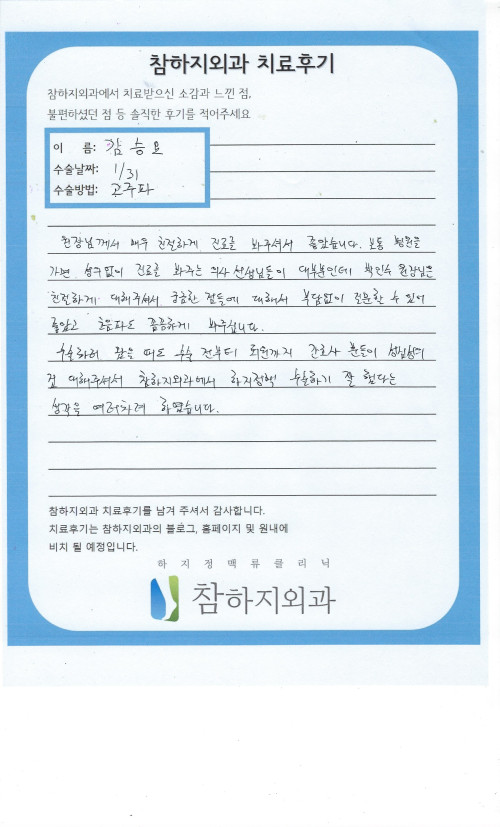 참하지외과 치료후기
참하지외과에서 치료받으신 소감과 느낀 점,
불편하셨던 점 등 솔직한 후기를 적어주세요
이 름: 김승요
수술날짜: 1/31
수술방법: 고주파
원장님께서 매우 친절하게 진료를 봐주셔서 좋았습니다. 보통 병원을
가면 성구없이 진료를 봐주는 의사 선생님들이 대부분인데 박인수 원장님은
친절하게 대해주셔서 궁금한 점들에 대해서 부담없이 질문할 수 있어
좋았고 초음파도 꼼꼼하게 봐주십니다.
수술하러 왔을 때도 수술 전부터 퇴원까지 간호사 분들이 성심성의
껏 대해주셔서 참하지외과에서 하지정맥 수술하기 잘 했다는
생각을 여러차례 하였습니다.
참하지외과 치료후기를 남겨 주셔서 감사합니다.
치료후기는 참하지외과의 블로그, 홈페이지 및 원내에
비치 될 예정입니다.
하지정맥류클리닉
참하지외과